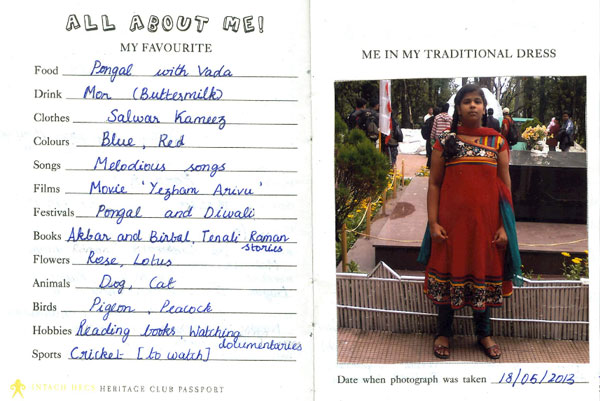 ALL ABOUT ME!
MY FAVOURITE
Food Pongal with Vada
Drink Mor (Buttermilk)
Clothes Salwar Kameez
Colours Blue, Red
Songs Melodious songs
Films Movie 'Yezham Arivu'
Festivals Pongal and Diwali
Books Akbar and Birbal, Tenali Raman
stories
Flowers Rose, Lotus
Animals Dog, Cat
Birds Pigeon, Peacock
Hobbies Reading books, Watching
documentaries
Sports Cricket [to watch]
INTACH HECS HERITAGE CLUB PASSPORT
ME IN MY TRADITIONAL DRESS
Date when photograph was taken 18/05/2013